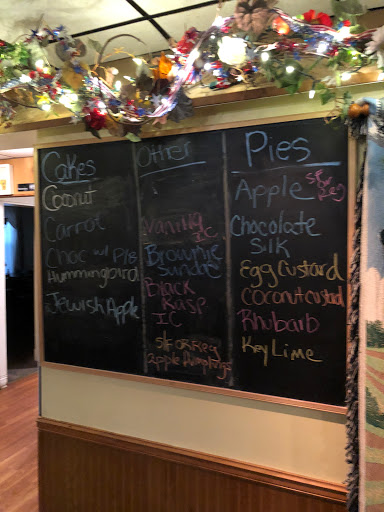 Cakes
Coconut
Carrot
Choc w/ P/B
Hummingbird
Jewish Apple
Other
Vanilla
I.C.
Brownie
Sundae
Black
Rasp
IC
Apple Dumplings
Pies
Apple
Chocolate
Silk
Egg Custard
Coconut custard
Rhubarb
Key Lime